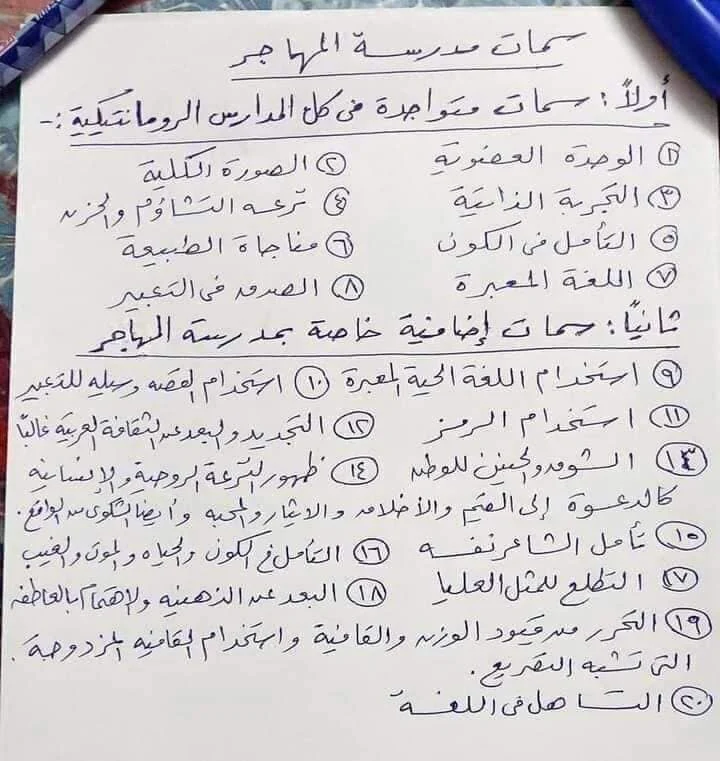 سمات مدرسة المهاجر
أولاً : سمات متواجدة فى كل المدارس الرومانتيكية :-
① الوحدة العضوية ② الصورة الكلية
③ التجربة الذاتية ④ نزعه التشاؤم والحزن
⑤ التأمل فى الكون ⑥ مناجاة الطبيعة
⑦ اللغة المعبرة ⑧ الصدق فى التعبير
ثانياً : سمات إضافية خاصة بمدرسة المهاجر
⑨ استخدام اللغة الحية المعبرة ⑩ استخدام القصه وسيله للتعبير
⑪ استخدام الرمز ⑫ التجديد والبعد عن الثقافة العربية غالباً
⑬ الشوق والحنين للوطن ⑭ ظهور النزعة الروحية والإنسانيه
كالدعوة إلى القيم والأخلاق والايثار والمحبه وأيضا الشكوى من الواقع .
⑮ تأمل الشاعر نفسه ⑯ التأمل فى الكون والحياه والموت والغيب
⑰ التطلع للمثل العليا ⑱ البعد عن الذهنيه والاهتمام بالعاطفه
⑲ التحرر من قيود الوزن والقافية واستخدام القافيه المزدوجة .
التى تشبه التصريع .
⑳ التساهل فى اللغة